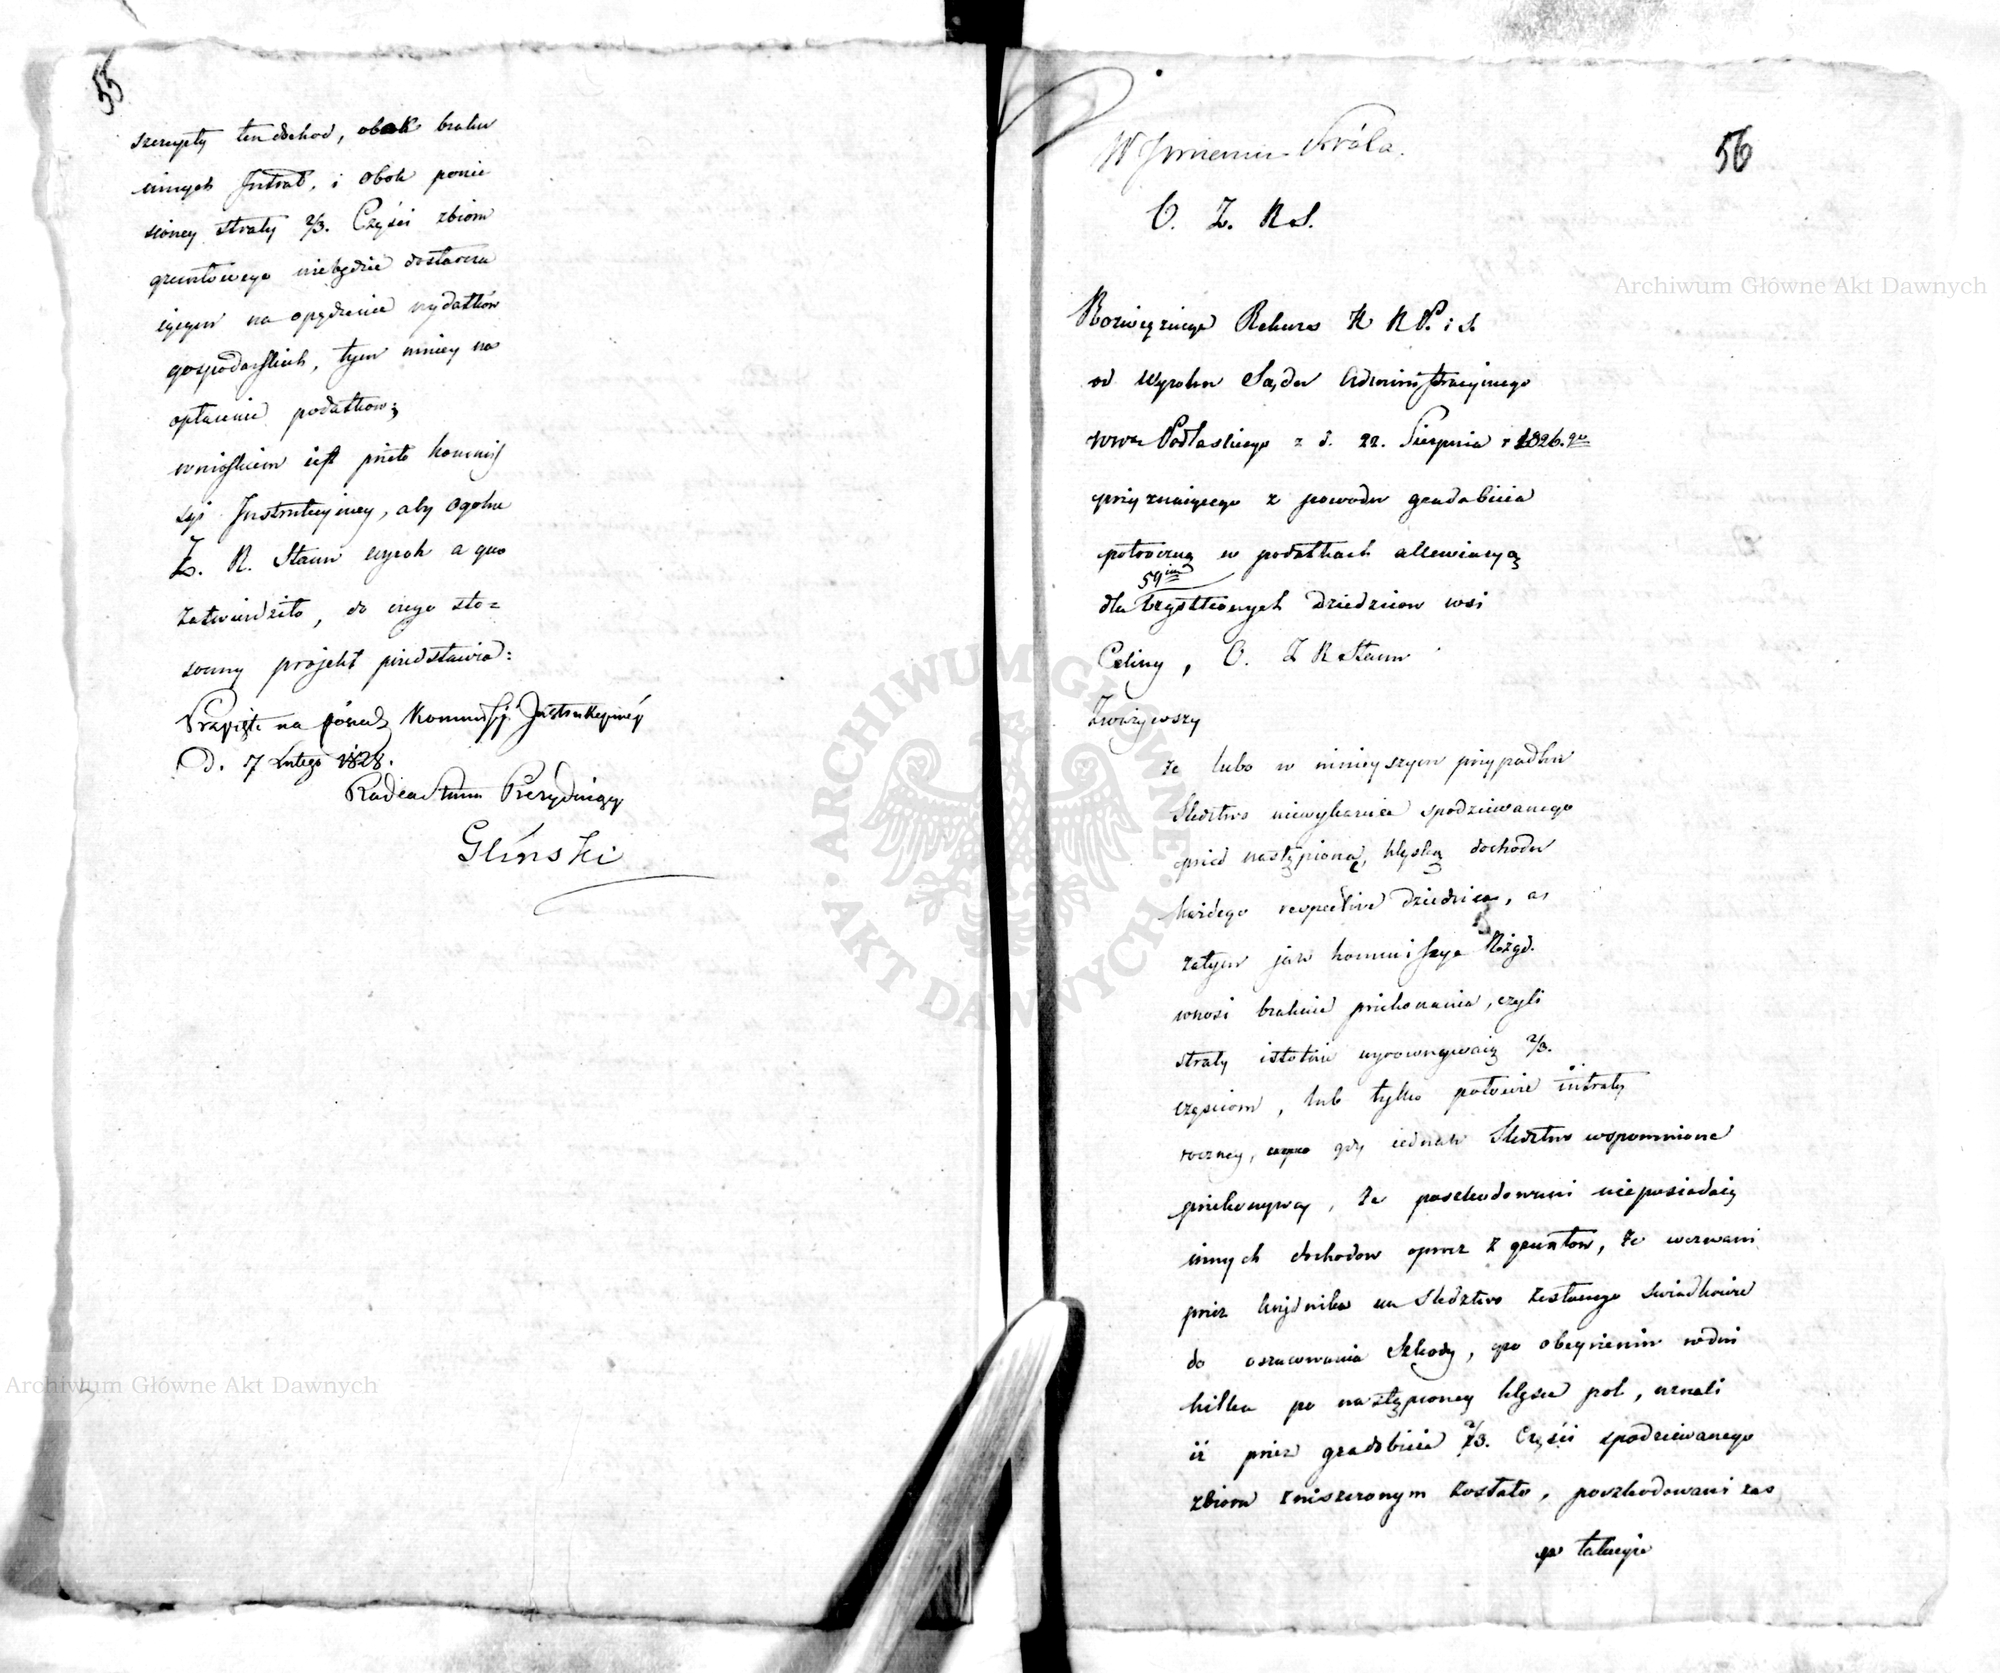 55
szczupły ten dochod, obok braku
innych Intrat, i obok ponie
sioney straty 2/3. Części zbioru
gruntowego niebędzie dostarcza
iącym na opędzenie wydatków
gospodarskich, tym mniey na
opłacenie podatkow;
wnioskiem iest przeto Kommis
syi Instrukcyiney, aby Ogolne
Z. R. Stanu wyrok a quo
zatwierdziło, do czego sto=
sowny projekt przedstawia:
Przyięte na posied. Kommissyi Instrukcyiney
D. 7 Lutego 1828.
Radca Stanu Prezyduiący
Gliński
56
W Imieniu Króla.
O. Z. R. S.
Rozwiązuiąc Rekurs K R P. i S.
od Wyroku Sądu Administracyinego
wwa Podlaskiego z d. 22. Sierpnia r 1826. go
przyznaiącego z powodu gradobicia
połroczną w podatkach allewiacyą
59ciu
dla wszystkich Dziedzicow wsi
Celiny, O. Z R Stanu
Zważywszy
że lubo w ninieyszym przypadku
Sledztwo niewykazuie spodziewanego
przed nastąpioną, klęską dochodu
każdego respective dziedzica, a
zatym jak Kommissya Rząd.
wnosi braknie przekonania, czyli
straty istotnie wyrownywaią 2/3.
częsciom, lub tylko połowie intraty
roczney, gdy iednak Sledztwo wspomnione
przekonywa, że poszkodowani nieposiadaią
innych dochodow oprocz z gruntow, że wezwani
przez Urzędnika na Sledztwo zesłanego świadkowie
do oszacowania Szkody, po obeyrzeniu wdni
kilka po nastąpioney klęsce pol, uznali
iż przez gradobicie 2/3. Części spodziewanego
zbioru zniszczonym zostało, poszkodowani zaś